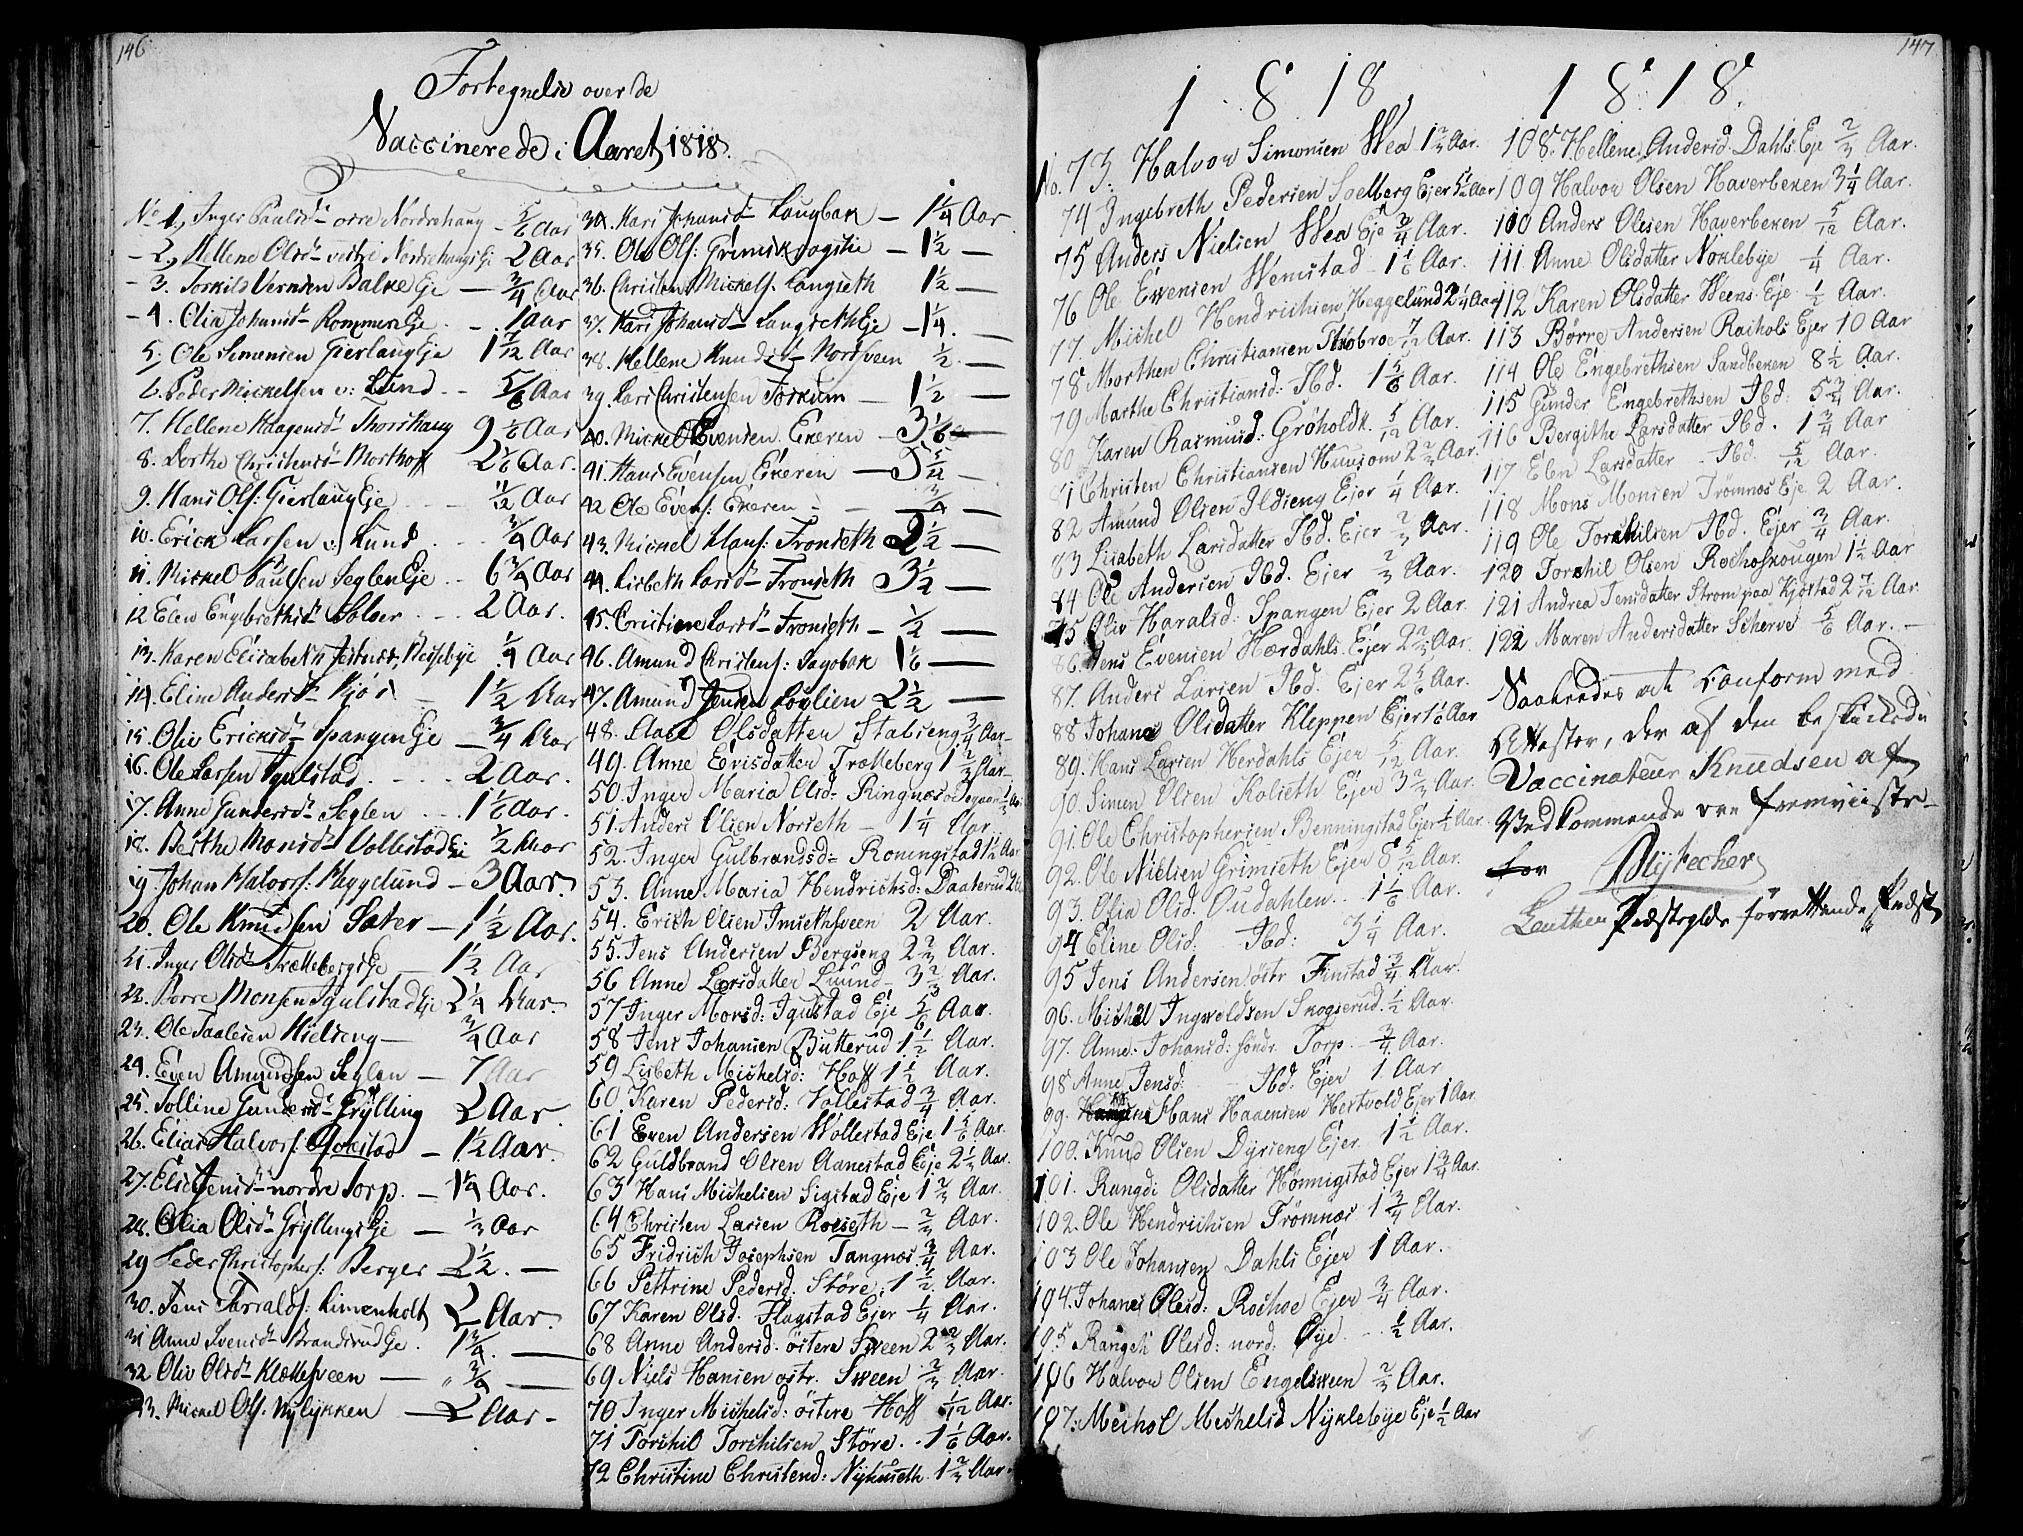 146
Fortegnelse over de
Vaccinerede i Aaret 1818.
No 1, Inger Paulsd. øvre Nordrehaug 5/6 Aar
2, Hellene Olsd. vestre Nordrehaugs Eje 2 Aar
3. Torkild Balke Eje 3/4 Aar
4. Olia Johansd. Rommen Eje 1 Aar
5. Ole Simensen Gierlaug Eje 1 1/12 Aar
6. Peder Mickelsen v: Lund 5/6 Aar
7. Hellene Haagensd. Thorshaug 9 1/6 Aar
8. Dorthe Christensd. Morthoff 2 1/6 Aar.
9. Hans Ols: Gierlaug Eje 11/12 Aar
10. Erick Larsen v: Lund 3/4 Aar
11. Mickel Paulsen Seglen Eje 6 3/4 Aar
12 Elen Engebrethsd. Solver 2 Aar.
13. Karen Elisabeth 1/4 Aar
14. Eline Andersd. Kjøs 1 1/2 Aar
15. Oliv Ericksd. Spangen Eje 3/4 Aar
16. Ole Larsen Igulstad 2 Aar.
17. Anne Gundersd. Seglen 1 1/6 Aar.
18. Berthe Monsd. Vollestad Eje 1/2 Aar
19. Johan Halvors: Heggelund 3 Aar
20. Ole Knudsen Sæter 1 1/2 Aar.
21. Inger Olsd. Trætteberg Eje 1 1/2 Aar
22. Børre Monsen Igulstad Eje 2 1/4 Aar.
23. Ole Paalsen Kielseng 3/4 Aar
24. Even Amundsen Seglen 7 Aar
25. Tolline Gundersd. Grylling 2 Aar
26. Elias Halvors: Ophstad 1 1/2 Aar.
27. Elie Jensd. nordre Torp. 1 1/4 Aar.
28. Olia Olsd. Gryllings Eje 1/3 Aar
29 Peder Christophers: Berger 2 1/2. —
30. Jens Haralds: Limenholt 2 Aar.
31 Anne Svensd. Brandsrud Eje. 1 3/4. —
32. Oliv Olsd. Klækesveen — „ 3/4 —
33. Mickel Ols. Nylykken — 2 Aar -
34. Kari Johansd. Laugbak — 1 1/4 Aar
35. Ole Ols: Grimskrogstie — 1 1/2 —
36. Christen Mickels. Langseth 1 1/2 —
37. Kari Johansd. Langseth Eje — 1 1/4. —
38. Hellene Knudsd. Nordsveen 1/2. —
39. Lars Christensen Torkum — 1 1/2 —
40. Mickel Evensen Ekeren — 3 1/6 —
41. Hans Evensen Ekeren — 5 5/12 —
42 Ole Evens: Ekeren — 3/4 —
43. Mickel Klaus: Tronseth 2 1/2 —
44. Lisbeth Larsd. Tronseth 3 1/2 —
45. Cristine Larsd. Tronseth — 1/2 —
46. Amund Christens: Sagbak 1 1/6 —
47. Amund Jensen Løvlien 2 1/2 —
48. Aase Olsdatten Stabseng 3/4 Aar
49. Anne Ericsdatter Trætteberg 1 2/3 Aar
50. Inger Maria Olsd: Ringnæs
51. Anders Olsen Norseth — 1 1/4 Aar
52. Inger Gulbrandsd: Roningstad 1 1/2 Aar
53. Anne Maria Hendrichsd: Daaterud
54. Erich Olsen Imisethsveen 2 Aar.
55. Jens Andersen Bergseng 2 2/3 Aar.
56 Anne Larsdatter Luund 3 2/3 Aar.
57 Inger Monsd: Igulstad Eje 5/6 Aar
58 Jens Johansen Butterud 1 1/2 Aar.
59 Lisbeth Michelsd: Hoff 1 1/2 Aar.
60 Karen Pedersd: Vollestad 3/4 Aar.
61 Even Andersen Wollestad Eje 1 5/6 Aar.
62 Guldbrand Olsen Aanestad Eje 2 1/3 Aar.
63 Hans Michelsen Sigstad Eje 1 2/3 Aar.
64 Christen Larsen Roeseth — 2/3 Aar.
65 Fridrich Josephsen Tangnæs 3/4 Aar.
66 Pettrine Pedersd. Støre: 1 1/2 Aar.
67 Karen Olsd. Flagstad Ejer 1/4 Aar.
68 Anne Andersd. østere Sween 2 2/3 Aar.
69 Niels Hansen østr. Sween 2/3 Aar.
70 Inger Michelsd: østere Hoff 1/12 Aar.
71 Torchil Torchilsen Støre. 1 1/6 Aar.
72 Christine Christend: Nyhuseth 1 2/3 Aar
147
1818
No. 73. Halvor Simonsen Wea 1 2/3 Aar.
74 Ingebreth Pedersen Soelberg Ejer 5 1/2 Aar
75 Anders Nielsen Wea Eje 2/4 Aar.
76 Ole Ewensen Wemstad 1 1/6 Aar.
77. Michel Hendrichsen Heggelund 2 1/4 Aar
78 Morthen Christiansen 7/12 Aar.
79 Marthe Christiansd: Ibd. 1 5/6 Aar.
80 Karen Rasmusd: Grøholdt 5/12 Aar.
81 Christen Christiansen Huusom 2 2/3 Aar.
82 Amund Olsen Ildseng Ejer 1/4 Aar.
83 Lisabeth Larsdatter Ibd. Ejer 2/3 Aar
84 Ole Andersen Ibd. Ejer 2/3 Aar.
85 Oliv Haralsd: Spangen Ejer 2 Aar.
86 Jens Evensen Hærdahls Ejer 2 2/3 Aar.
87. Anders Larsen Ibd. Ejer 2 5/6 Aar.
88 Johana Olsdatter Kleppen Ejer 1 1/6 Aar
89. Hans Larsen Herdahls Ejer 5/12 Aar.
90. Simen Olsen Kolseth Ejer 3 2/3 Aar.
91. Ole Christophersen Benningstad Ejer 1/2 Aar.
92. Ole Nielsen Grimseth Ejer 8 5/12 Aar.
93. Olia Olsd. Oudahlen. 1 1/6 Aar.
94 Eline Olsd: Ibd: 3 1/4 Aar.
95 Jens Andersen østr Finstad 3/4 Aar.
96. Michel Ingwoldsen Skogserud. 1/2 Aar.
97. Anne. Johansd: søndr Torp 3/4 Aar.
98 Anne Jensd: Ibd: Ejer 1 Aar
99. Hans Haaensen Hestvold Ejer 1 Aar
100. Knud Olsen Dyrseng Ejer 1 1/2 Aar.
101. Rangdi Olsdatter Hønnigstad Ejer 1 3/4 Aar.
102. Ole Hendrichsen Frømnæs 1 3/4 Aar.
103 Ole Johansen Dahls Ejer 1 Aar.
104. Johanes Olesd: Rochoe Ejer 3/4 Aar.
105 Rangdi Olesd: nord. Øye 1/2 Aar.
106 Halvor Olsen Engelsween 2/3 Aar.
107: Meihol Mechelsd Nyklebye Eje 1/2 Aar
1818.
108. Hellene Andersd. Dahls Eje 2/3 Aar.
109 Halvor Olsen Haverbeken 3 1/4 Aar.
110 Anders Olesen Haverbeken 5/12 Aar.
111 Anne Olsdatter Nøklebye 1/4 Aar.
112 Karen Olsdatter Weens Eje 1/2 Aar.
113 Børre Andersen Raihols Ejer 10 Aar
114 Ole Engebrethsen Sandbeken 8 1/2 Aar.
115 Gunder Engebrethsen Ibd: 5 3/4 Aar.
116 Bergithe Larsdatter Ibd. 1 3/4 Aar
117 Elen Larsdatter Ibd. 5/12 Aar.
118 Mons Monsen Frømnæs Eje 2 Aar.
119 Ole Torchilsen Ibd. Ejer 3/4 Aar.
120 Torchil Olsen Rochoskougen 1 1/2 Aar
121 Andrea Jensdatter Strom paa Kjøstad 2 7/12 Aar.
122 Maren Andersdatter Scherve 5/6 Aar.
Saaledes at conform med
Attester, der af den beskikkede
Vaccinateur Knudsen af
Vedkommende ere fremviiste
for Plytecher
Leuthen Præstegilds forrettende Præst